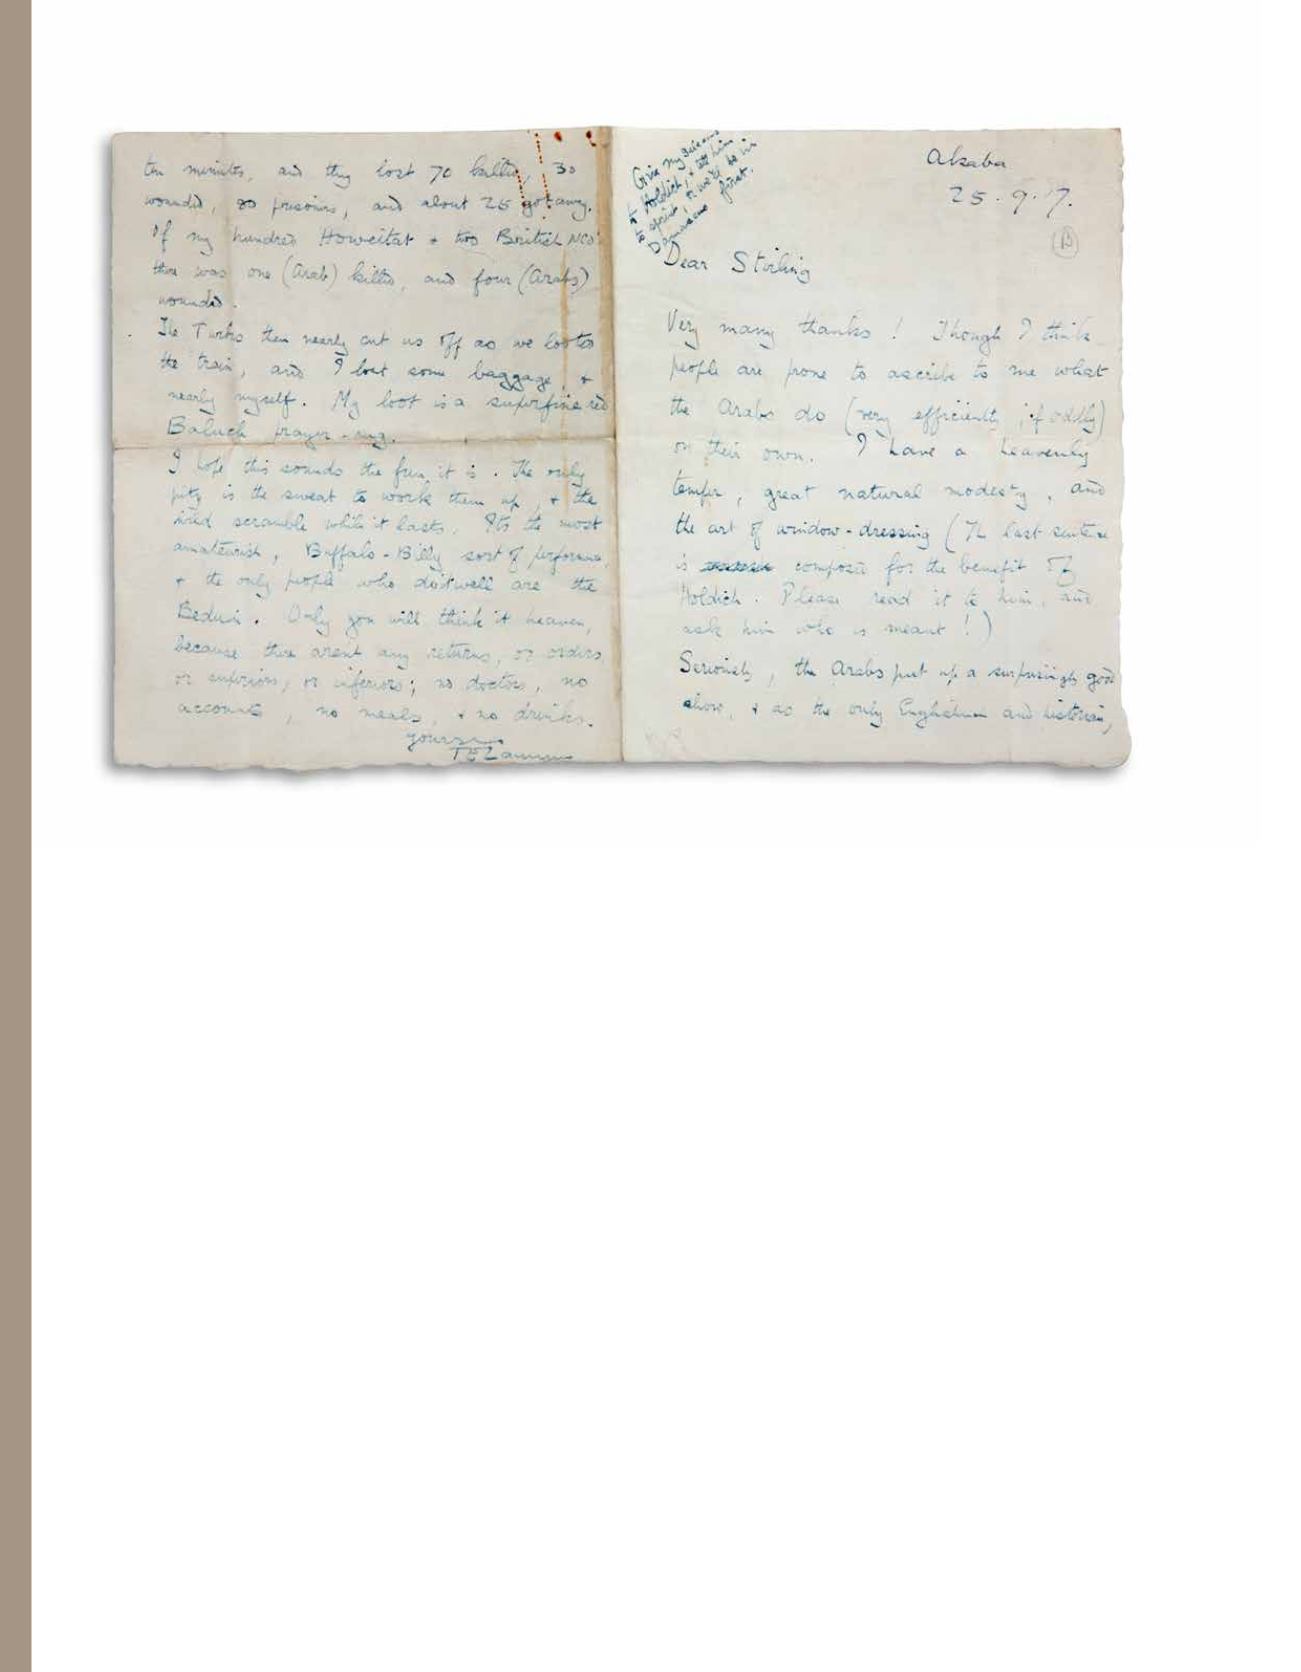 ten minutes, and they lost 70 killed, 30
wounded, 80 prisoners, and about 25 got away.
Of my hundred Howeitat & two British NCO's
there was one (Arab) killed, and four (Arabs)
wounded.
The Turks then nearly cut us off as we looted
the train, and I lost some baggage, &
nearly myself. My loot is a superfine red
Baluch prayer-rug.
I hope this sounds the fun it is. The only
pity is the sweat to work them up, & the
wild scramble while it lasts. It's the most
amateurish, Buffalo-Billy sort of performance,
& the only people who do it well are the
Bedui. Only you will think it heaven,
because there aren't any returns, or orders,
or superiors, or inferiors; no doctors, no
accounts, no meals, & no drinks.
yours
TELawrence
Give my salaams
to Holdich, & tell him
to sprint or we'll be in
Damascus first.
Akaba
25.9.17.
Dear Stirling
Very many thanks! Though I think
people are prone to ascribe to me what
the Arabs do (very efficiently, if oddly)
on their own. I have a heavenly
temper, great natural modesty, and
the art of window-dressing (The last sentence
is composed for the benefit of
Holdich. Please read it to him, and
ask him who is meant!)
Seriously, the Arabs put up a surprisingly good
show, & as the only Englishman and historian,